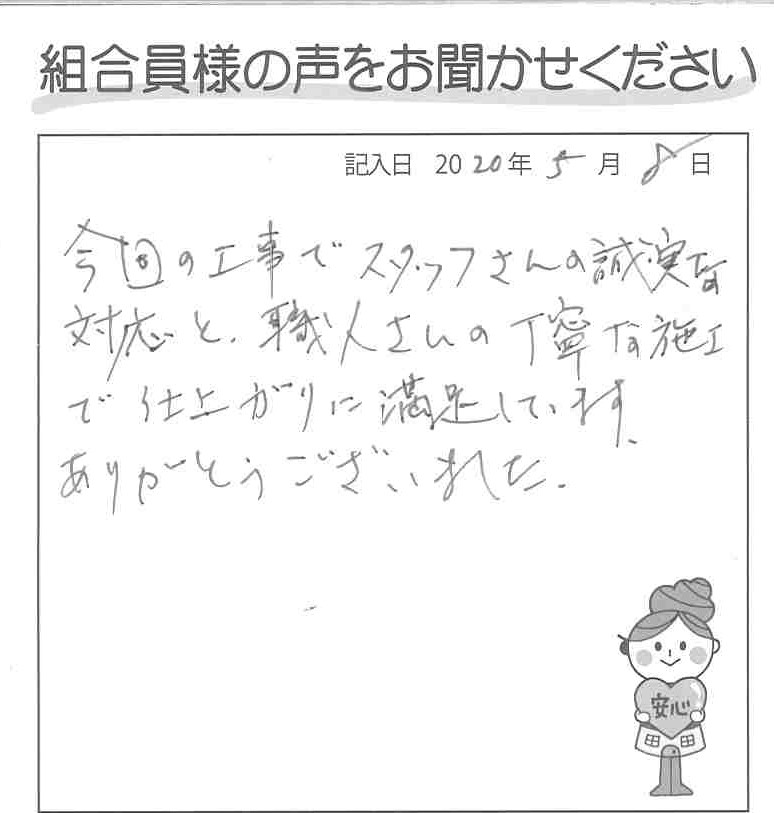 組合員様の声をお聞かせください
記入日 2020年5月8日
今回の工事でスタッフさんの誠実な
対応と、職人さんの丁寧な施工
で仕上がりに満足しています。
ありがとうございました。
安心